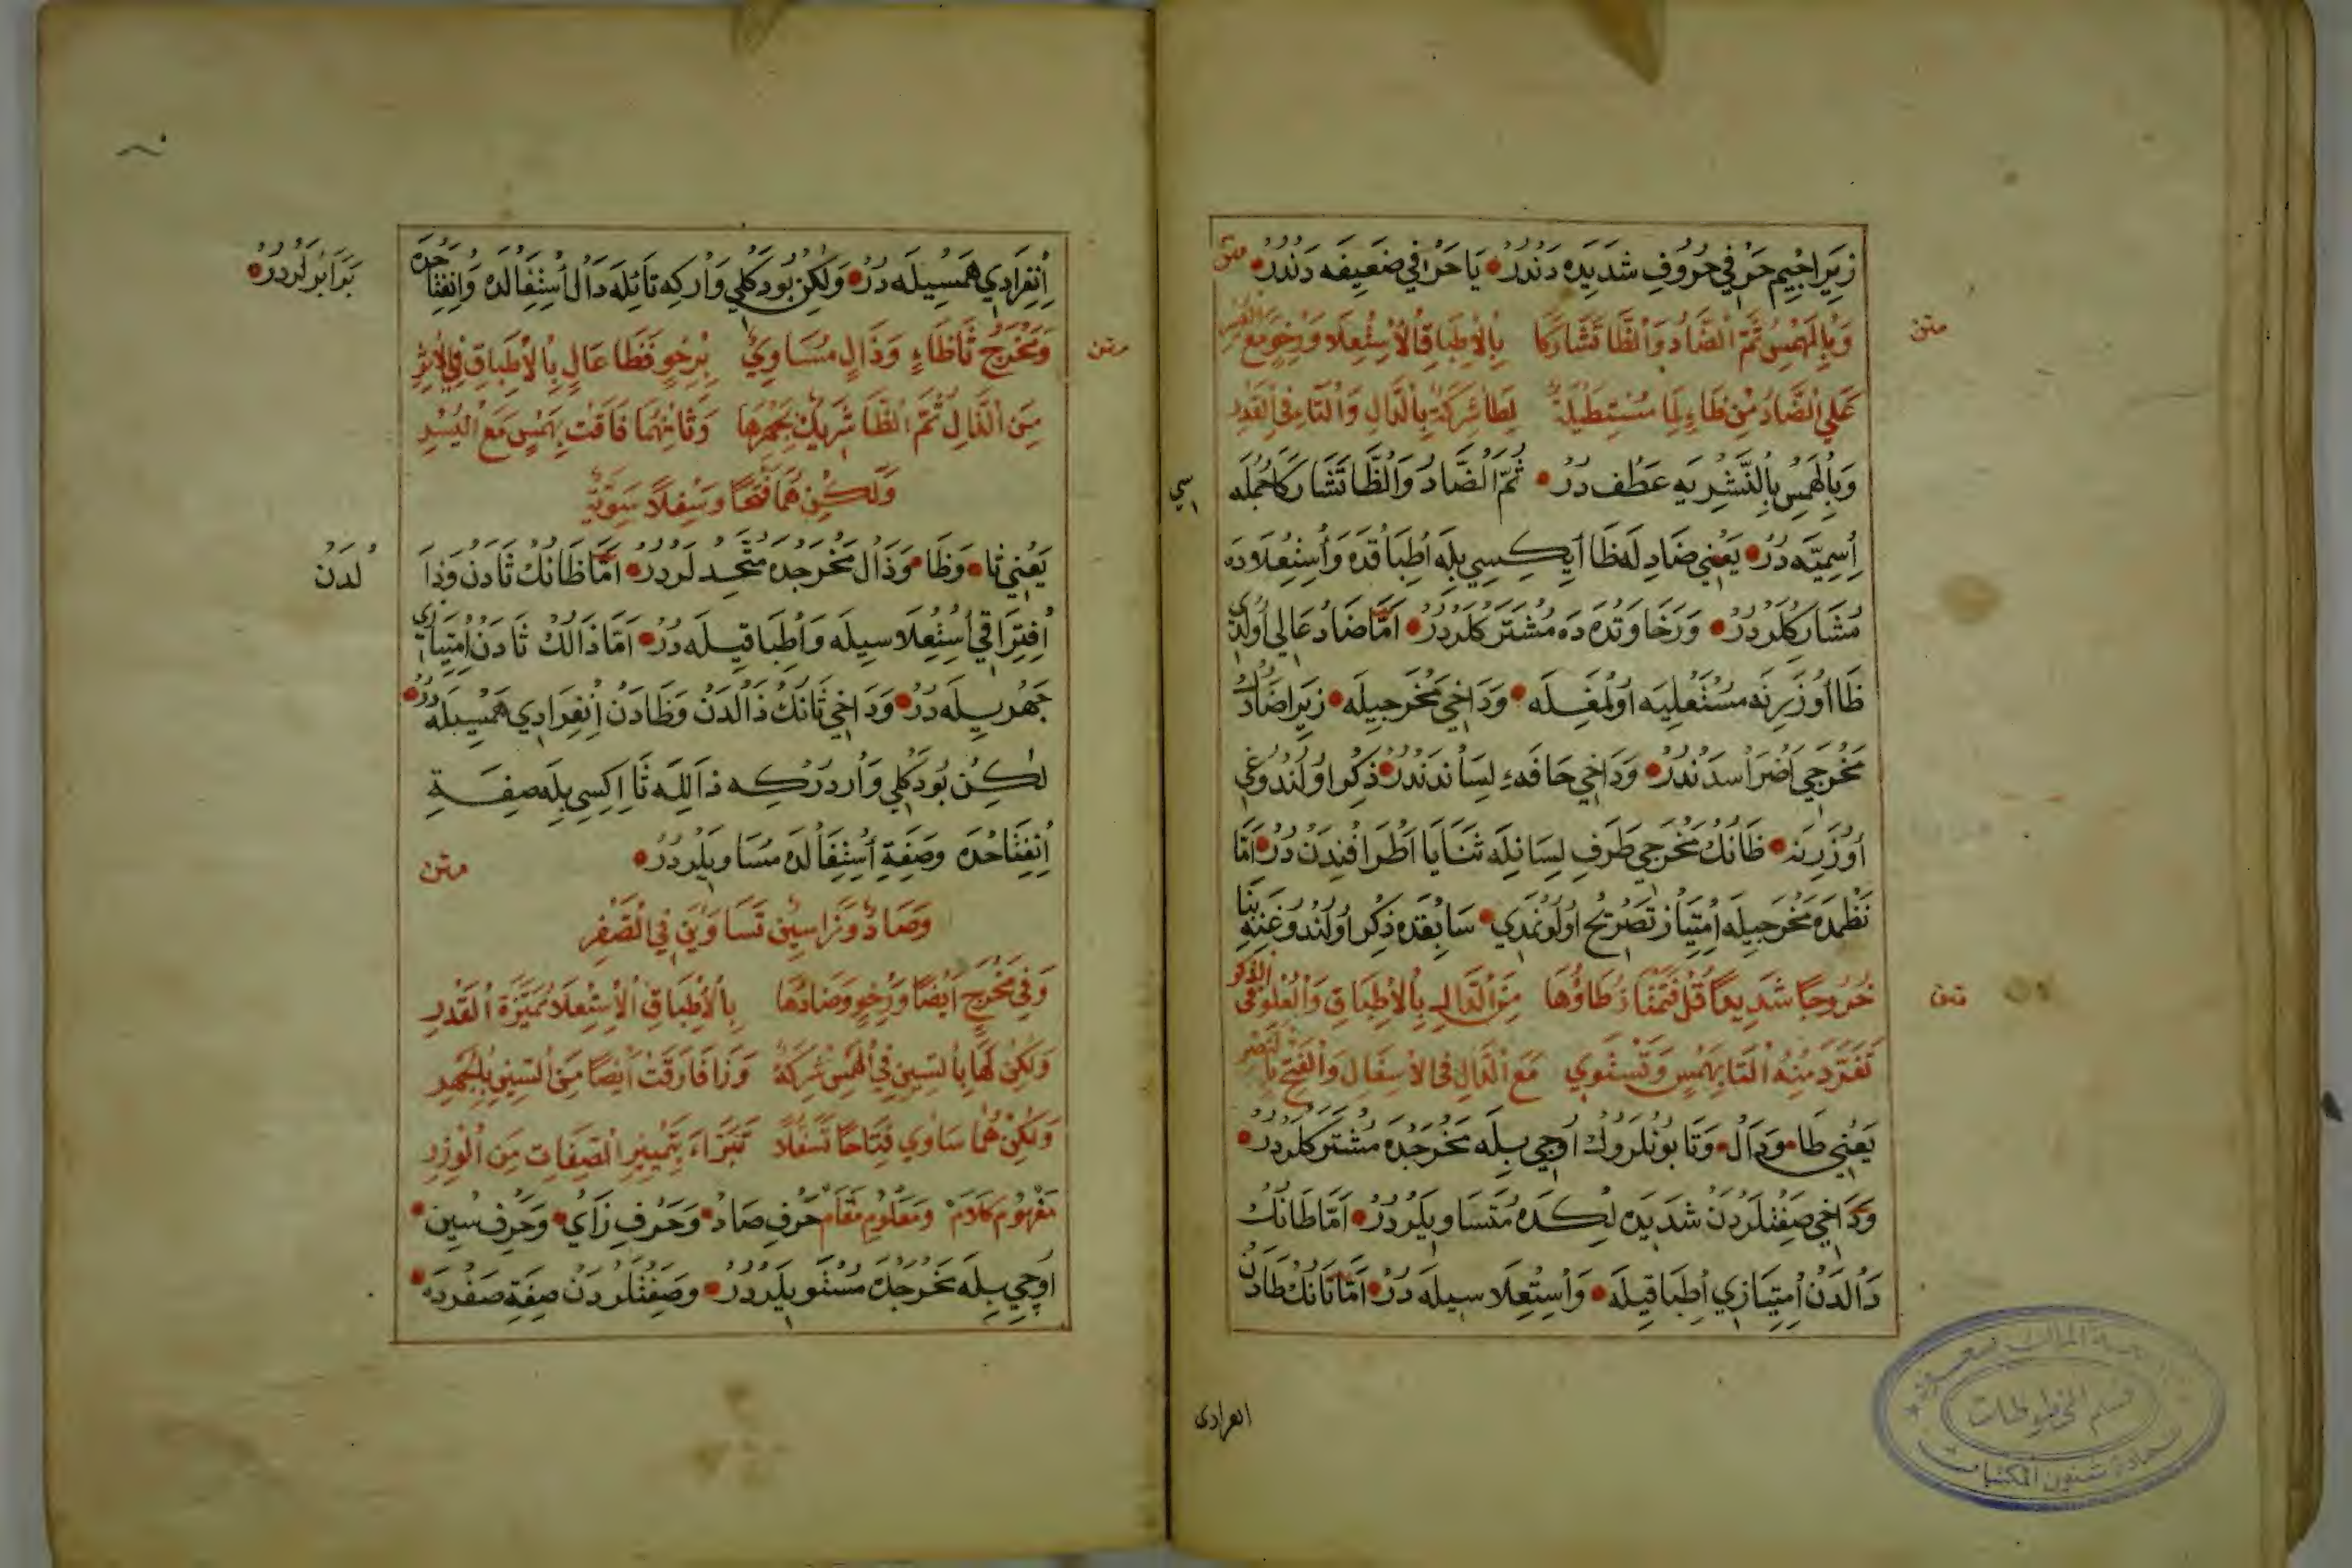 زِيرَا جِيم حَرْفِي حُرُوفِ شَدِيدَه دَنْدُرْ يَا حَرْفِي ضَعِيفَه دَنْدُرْ متن
متن
وَبِالْهَمْسِ ثُمَّ الضَّادُ وَالظَّا تَشَارَكَا بِالْاِطْبَاقِ الْاِسْتِعْلَا وَرِخْوٍ مَعَ
عَلَى الضَّادُ مِنْ ظَاءٍ لَهَا مُسْتَطِيلَةٌ لِطَا شِرْكَةٌ بِالدَّالِ وَالتَّا فِى الْقَدْرِ
وَبِالْهَمْسِ بِالنَّشْرِ يَه عَطْف دُرْ ثُمَّ الضَّادُ وَالظَّا تَشَارَكَا جُمْلَه
سى
اِسْمِيَّه دُرْ يَعْنِي ضَادِلَه ظَا اَيكِيسِي بِلَه اِطْبَاقْدَه وَاُسْتِعْلَادَه
مُشَارِكْلَرْدِرْ وَرَخَاوَتْدَه دَه مُشْتَرَكْلَرْدِرْ اَمَّا ضَاد عَالِي اُولْدِى
ظَا اُوزَرِنَه مُسْتَعْلِيَه اُولْمَغِلَه وَدَاخِي مَخْرَجِيلَه زِيرَا ضَادُكْ
مَخْرَجِي اَضْرَاسْدَنْدُرْ وَدَاخِي حَافَهءِ لِسَانْدَنْدُرْ ذِكْر اُولُنْدُوغِي
اُوزَرِنَه ظَانِكْ مَخْرَجِي طَرَفِ لِسَانِلَه ثَنَايَا اَطْرَافِنْدَنْ دُرْ اَمَّا
نَظْمْدَه مَخْرَجِيلَه اِمْتِيَازْ تَصْرِيحْ اُولُونْمَدِي سَابِقْدَه ذِكْر اُولُنْدُوغِنَه بِنَا
متن
خُرُوجًا شَدِيدًا قُلْ فَتَمْتَازُ طَاؤُهَا مِنَ الدَّالِ بِالْاِطْبَاقِ وَالْعُلُوِّ فِى الذِّكْرِ
تَفَرَّدَ مِنْهُ التَّا بِهَمْسٍ وَتَسْتَوِي مَعَ الدَّالِ فِى الْاِسْفَالِ وَالْفَتْحِ
يَعْنِي طَا وَدَالْ وَتَا بُونْلَرُوكْ اُوچِي بِلَه مَخْرَجْدَه مُشْتَرَكْلَرْدِرْ
وَدَاخِي صِفَتْلَرْدَنْ شَدِيدَه لِكْدَه مُتَسَاوِيلَرْدِرْ اَمَّا طَانِكْ
دَالْدَنْ اِمْتِيَازِي اِطْبَاقِيلَه وَاُسْتِعْلَاسِيلَه دُرْ اَمَّا تَانِكْ طَادَنْ
انفرادى
اِنْفِرَادِي هَمْسِيلَه دُرْ وَلَكِنْ بُودَكْلِي وَارْكِه تَائِلَه دَالْ اُسْتِفَالَدَه وَانْفِتَاحْدَه
بَرَابَرْلَرْدِرْ
متن
وَمَخْرَجُ ثَا ظَاءٍ وَذَالٍ مُسَاوِيٌ بِرِخْوٍ فَظَا عَالٍ بِالْاِطْبَاقِ فِي الْاِثْرِ
مِنَ الذَّالِ ثُمَّ الظَّا شَرِيكٌ بِجَهْرِهَا وَثَانِيهُمَا فَاقَتْ بِهَمْسٍ مَعَ الْيُسْرِ
وَلَكِنْ هُمَا فَتْحًا وَسِفْلًا سَوِيَّةٌ
يَعْنِي ثَا وَظَا وَذَالْ مَخْرَجْدَه مُتَّحِدْلَرْدِرْ اَمَّا ظَانِكْ ثَادَنْ وَذَا
لْدَنْ
اِفْتِرَاقِي اُسْتِعْلَاسِيلَه وَاُطْبَاقِيلَه دُرْ اَمَّا ذَالِكْ ثَادَنْ اِمْتِيَازِى
جَهْرِيلَه دُرْ وَدَاخِي ثَانِكْ ذَالْدَنْ وَظَادَنْ اِنْفِرَادِي هَمْسِيلَه دُرْ
لَكِنْ بُودَكْلِي وَارْدُرْكِه ذَالِلَه ثَا اِكِيسِي بِلَه صِفَةِ
اِنْفِتَاحْدَه وَصِفَةِ اُسْتِفَالَدَه مُسَاوِيلَرْدِرْ
متن
وَصَادٌ وَزَا سِينٍ تَسَاوَيْنَ فِي الصَّفْرِ
وَفِي مَخْرَجٍ اَيْضًا وَرِخْوٍ وَصَادُهَا بِالْاِطْبَاقِ الْاِسْتِعْلَا مُمَيَّزَةُ الْقَدْرِ
وَلَكِنْ لَهَا بِالسِّينِ فِي الْهَمْسِ شِرْكَةٌ وَزَا فَارَقَتْ اَيْضًا مِنَ السِّينِ بِالْجَهْرِ
وَلَكِنْ هُمَا سَاوِي فِتَاحًا تَسَفُّلًا تَبَرَّاءَ بِتَمْيِيزِ الصِّفَاتِ مِنَ الْوِزْرِ
مَفْهُومِ كَلَامْ وَمَعْلُومِ مَقَامْ حَرْفِ صَادْ وَحَرْفِ زَايْ وَحَرْفِ سِينْ
اُوچِي بِلَه مَخْرَجْدَه مُسْتَوِيلَرْدِرْ وَصِفَتْلَرْدَنْ صِفَةِ صَفِرْدَه
قسم المخطوطات
عمادة شئون المكتبات